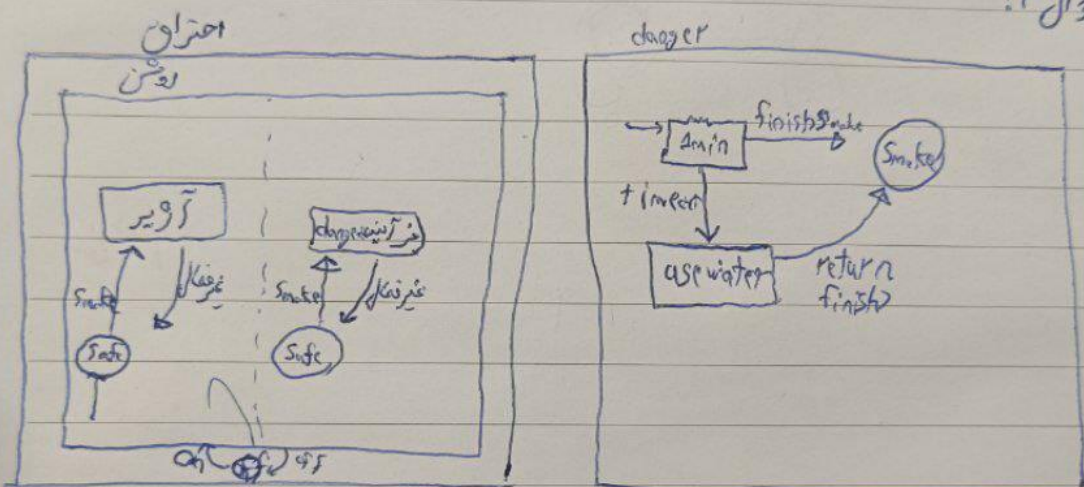 احتراق
روشن
آژیر
Smoke
غیرفعال
Safe
فرآیند danger
Smoke
غیرفعال
Safe
on
off
danger
1min
finish Smoke
Smoke
timeer
use water
return
finish